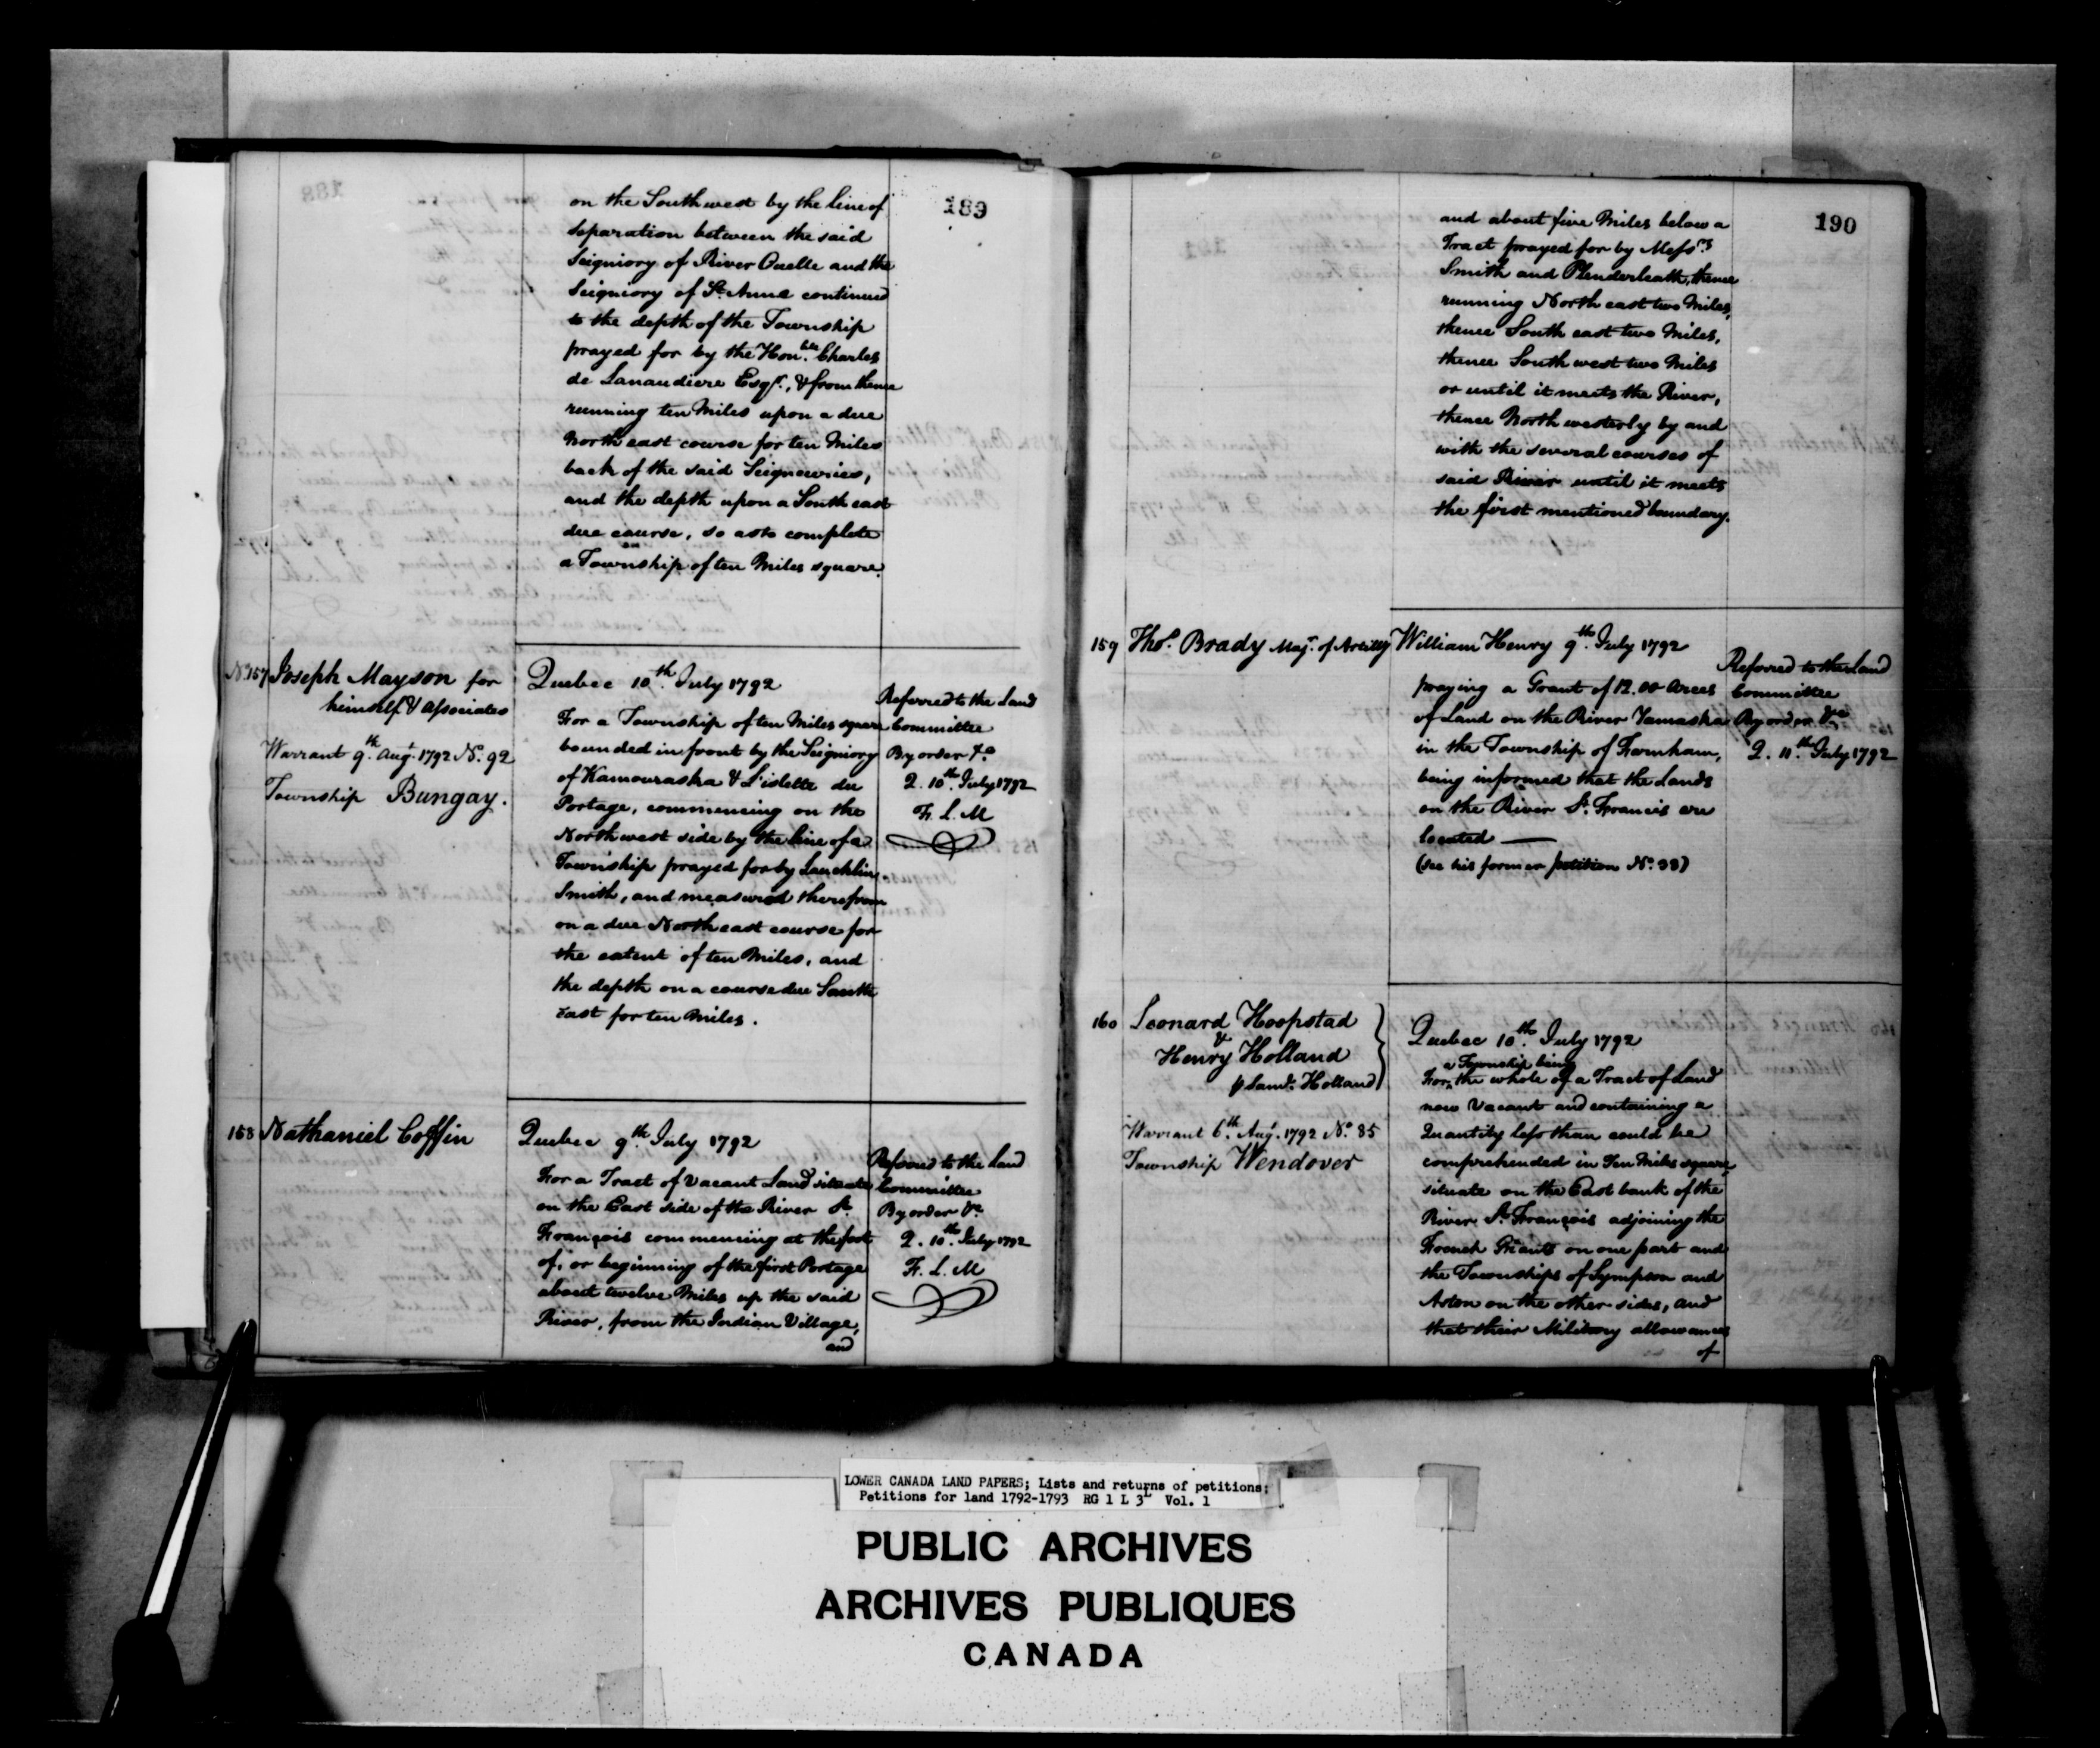 189
on the South west by the line of
separation between the said
Seigniory of River Ouelle and the
Seigniory of St. Anne continued
to the depth of the Township
prayed for by the Honble. Charles
de Lanaudiere Esqr., & from thence
running ten Miles upon a due
North east course for ten Miles
back of the said Seigneuries,
and the depth upon a South east
due course, so as to complete
a Township of ten Miles square.
No. 157 Joseph Mayson for
himself & Associates
Warrant 9th. Augt. 1792 No. 92
Township Bungay.
Quebec 10th. July 1792
For a Township of ten Miles square
bounded in front by the Seigniory
of Kamouraska & L'islette du
Portage, commencing on the
North west side by the line of a
Township prayed for by Lauchlin
Smith, and measured therefrom
on a due North east course for
the extent of ten Miles, and
the depth on a course due South
East for ten Miles.
Referred to the Land
Committee
By order &c
Q. 10th. July 1792
F. L. M
158 Nathaniel Coffin
Quebec 9th. July 1792
For a Tract of Vacant Land situate
on the East side of the River St.
François commencing at the foot
of, or beginning of the first Portage
about twelve Miles up the said
River, from the Indian Village,
and
Referred to the Land
Committee
By order &c
Q. 10th. July 1792
F. L. M
190
and about five Miles below a
Tract prayed for by Messrs
Smith and Plenderleath, thence
running North east two Miles,
thence South east two Miles,
thence South west two Miles
or until it meets the River,
thence North westerly by and
with the several courses of
said River until it meets
the first mentioned boundary.
159 Thos. Brady Majr. of Artilly
William Henry 9th. July 1792
praying a Grant of 12.00 Acres
of Land on the River Yamaska
in the Township of Farnham,
being informed that the Lands
on the River St. Francis are
located —
(see his former petition No. 38)
Referred to the Land
Committee
By order &c
Q. 10th. July 1792
160 Leonard Hoopstad
&
Henry Holland
p Saml. Holland
Warrant 6th. Augt. 1792 No. 85
Township Wendover
Quebec 10th. July 1792
a Township being
For, the whole of a Tract of Land
now Vacant and containing a
Quantity less than could be
comprehended in Ten Miles square
situate on the East bank of the
River St. François adjoining the
French Grants on one part and
the Townships of Sympson and
Aston on the other sides, and
that their Military allowances
of
LOWER CANADA LAND PAPERS; Lists and returns of petitions:
Petitions for land 1792-1793 RG 1 L 3L Vol. 1
PUBLIC ARCHIVES
ARCHIVES PUBLIQUES
CANADA